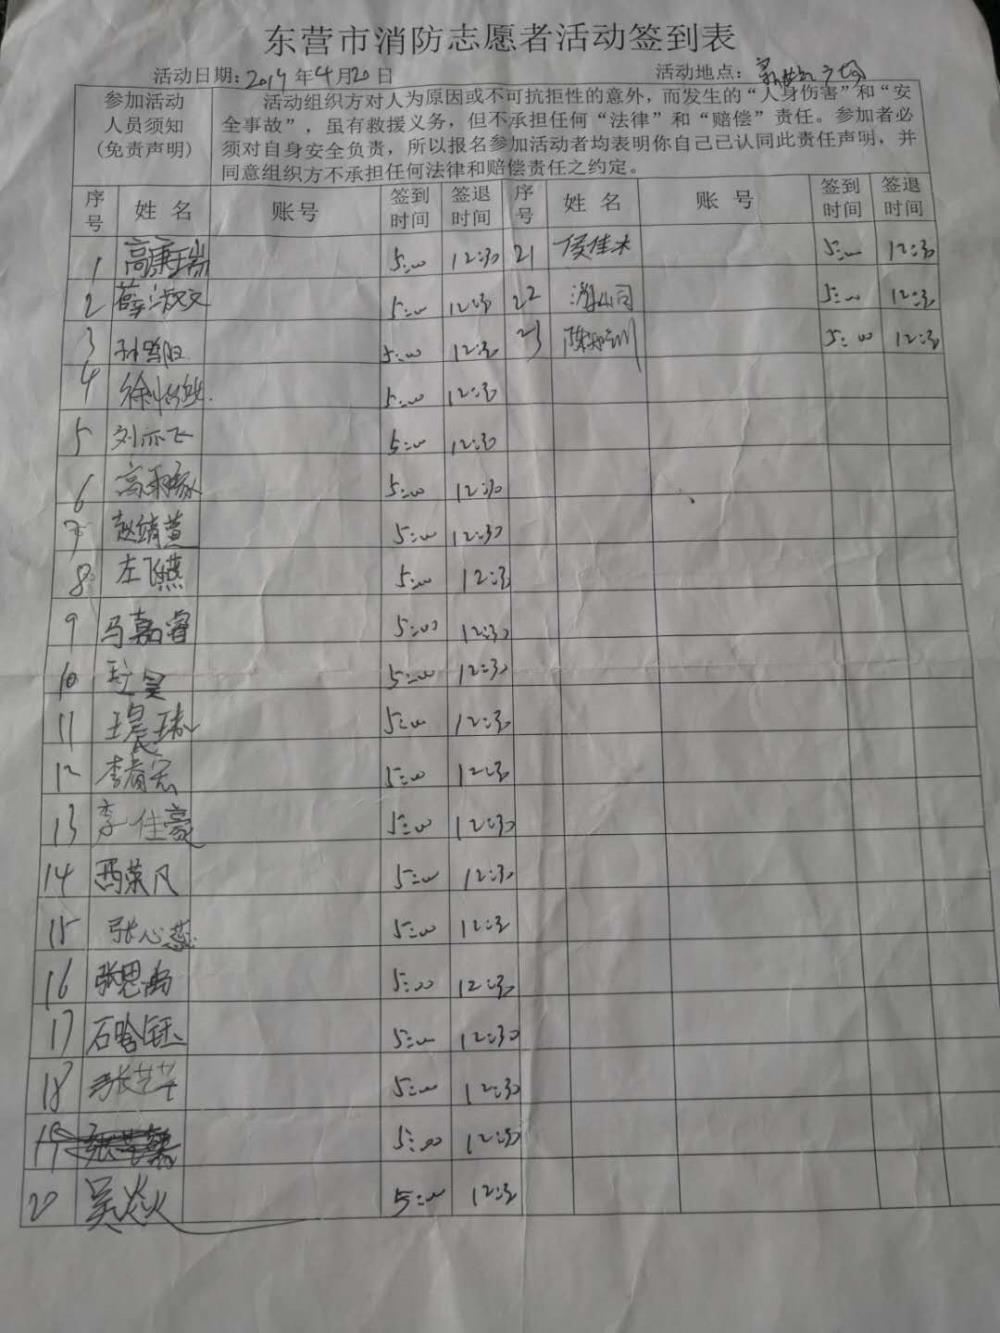 东营市消防志愿者活动签到表
活动日期: 2019 年 4 月 20 日 活动地点:
参加活动
人员须知
(免责声明)
活动组织方对人为原因或不可抗拒性的意外，而发生的“人身伤害”和“安
全事故”，虽有救援义务，但不承担任何“法律”和“赔偿”责任。参加者必
须对自身安全负责，所以报名参加活动者均表明你自己已认同此责任声明，并
同意组织方不承担任何法律和赔偿责任之约定。
序号 姓名 账号 签到时间 签退时间 序号 姓名 账号 签到时间 签退时间
1 高康瑞 5:00 12:30 21 侯佳木 5:00 12:30
2 薛淑文 5:00 12:30 22 5:00 12:30
3 5:00 12:30 23 5:00 12:30
4 5:00 12:30
5 刘亦飞 5:00 12:30
6 5:00 12:30
7 赵靖萱 5:00 12:30
8 左飞燕 5:00 12:30
9 马嘉睿 5:00 12:30
10 5:00 12:30
11 5:00 12:30
12 5:00 12:30
13 李佳豪 5:00 12:30
14 5:00 12:30
15 张心蕊 5:00 12:30
16 张思禹 5:00 12:30
17 石晗钰 5:00 12:30
18 5:00 12:30
19 5:00 12:30
20 吴焱 5:00 12:30